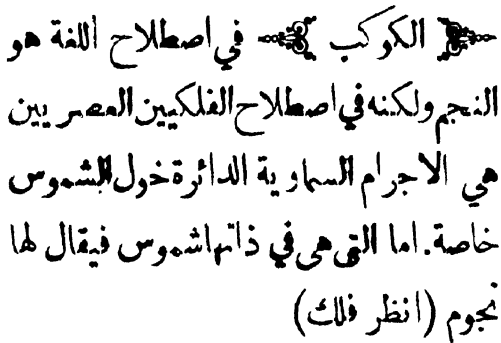 الكوكب في اصطلاح اللغة هو
النجم ولكنه في اصطلاح الفلكيين العصريين
هي الاجرام السماوية الدائرة حول الشموس
خاصة. اما التي هي في ذاتها شموس فيقال لها
نجوم (انظر فلك)